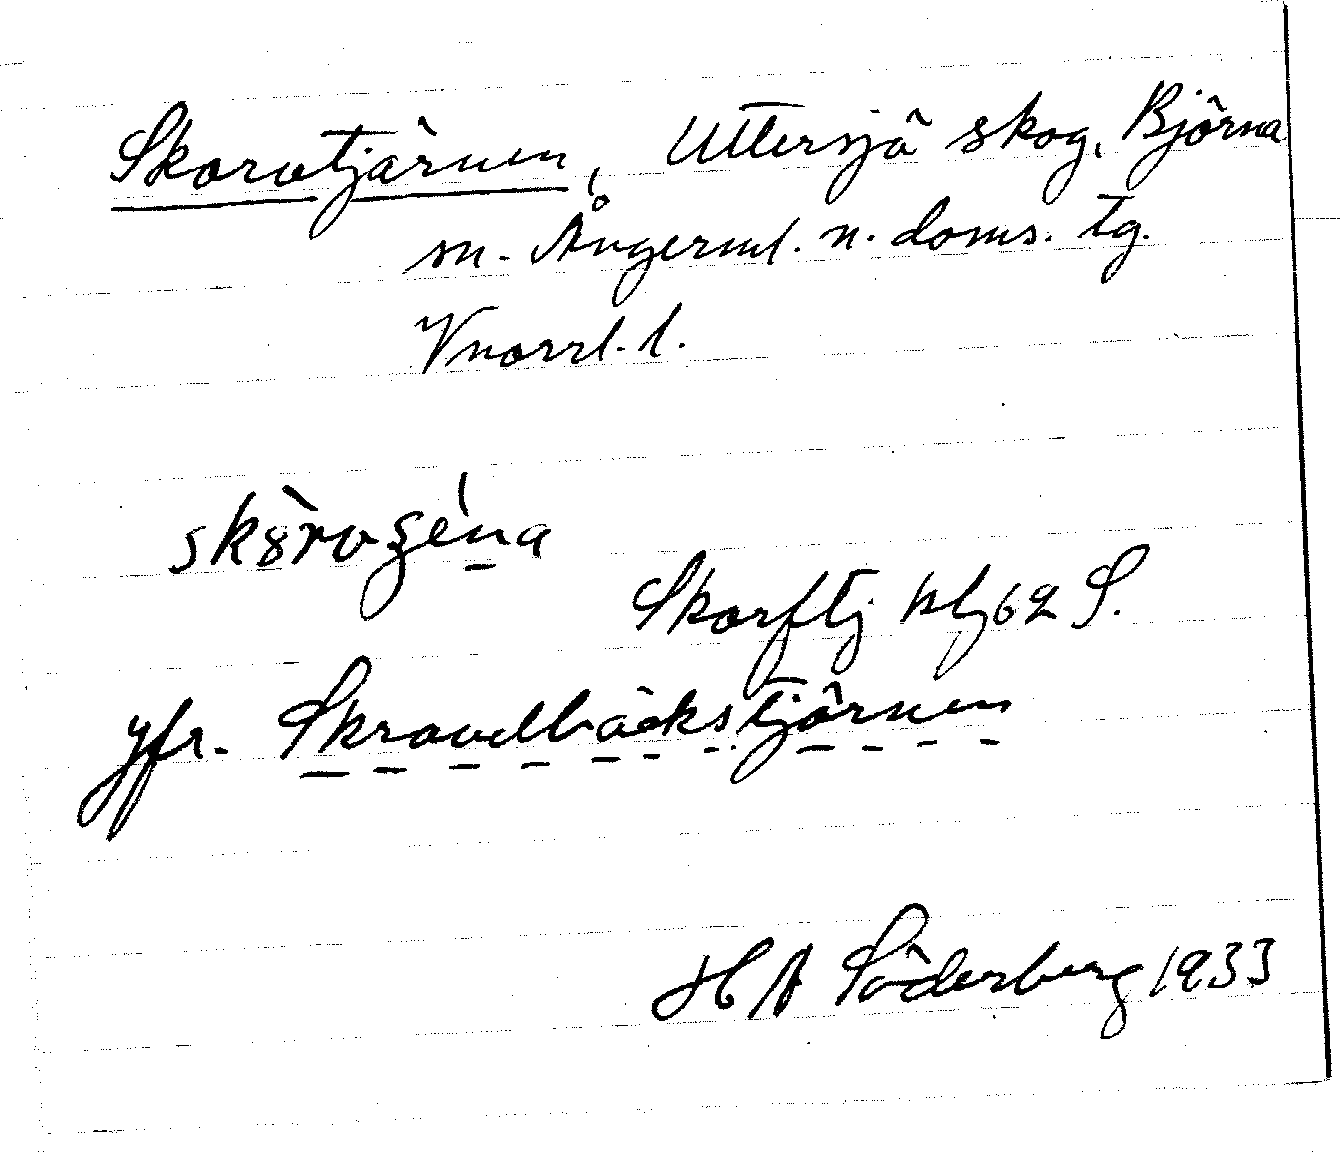 Skoravtjärnen, Uttersjö skog, Björna
sn. Ångerml. n. doms. tg.
Vnorrl. l.
Skorftj 62 S.
yfr. Skravelbäckstjärnen
H A Söderberg 1933